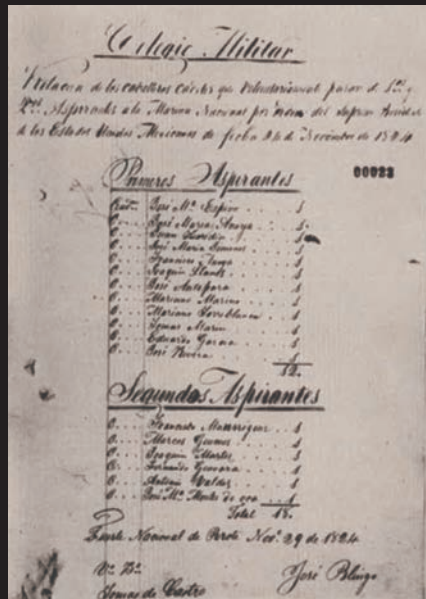 Colegio Militar
Relacion de los caballeros cadetes que voluntariamente pasan de 1os y
2os Aspirantes a la Marina Nacional por orden del Supremo
de los Estados Unidos Mexicanos de fecha 24 de Noviembre de 1824
00023
Primeros Aspirantes
José Ma. Espino 1
C. José María Anaya 1
C. Juan 1
C. José María 1
C. Francisco 1
C. Joaquin 1
C. José Antepara 1
C. Mariano Marino 1
C. Mariano Torreblanca 1
C. Tomas Marin 1
C. Eduardo Garcia 1
C. José Rivera 1
12.
Segundos Aspirantes
C. Manrrique 1
C. Marcos 1
C. Joaquin 1
C. Fernando Guevara 1
C. Antonio Valdes 1
C. José Ma. Montes de oca 1
Total 18.
Fuerte Nacional de Perote Nove. 29 de 1824
Vo. Bo.
Tomas de Castro José